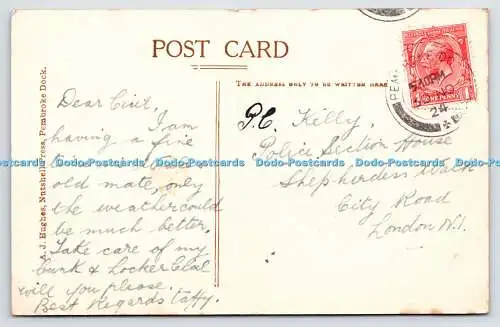 POST CARD
THE ADDRESS ONLY TO BE WRITTEN HERE
A. J. Hughes, Nutshell Press, Pembroke Dock.
Dear
I am
having a fine
old mate, only
the weather could
be much better.
Take care of my
bunk & Locker
will you please.
Best Regards Taffy.
P.C. Kelly,
Police Section House
Shepherdess Walk
City Road
London N.1.
PEM
5 40PM
24
ONE PENNY
Dodo-Postcards Dodo-Postcards Dodo-Postcards Dodo-Postcards Dodo-Postcards Dodo-Postcards